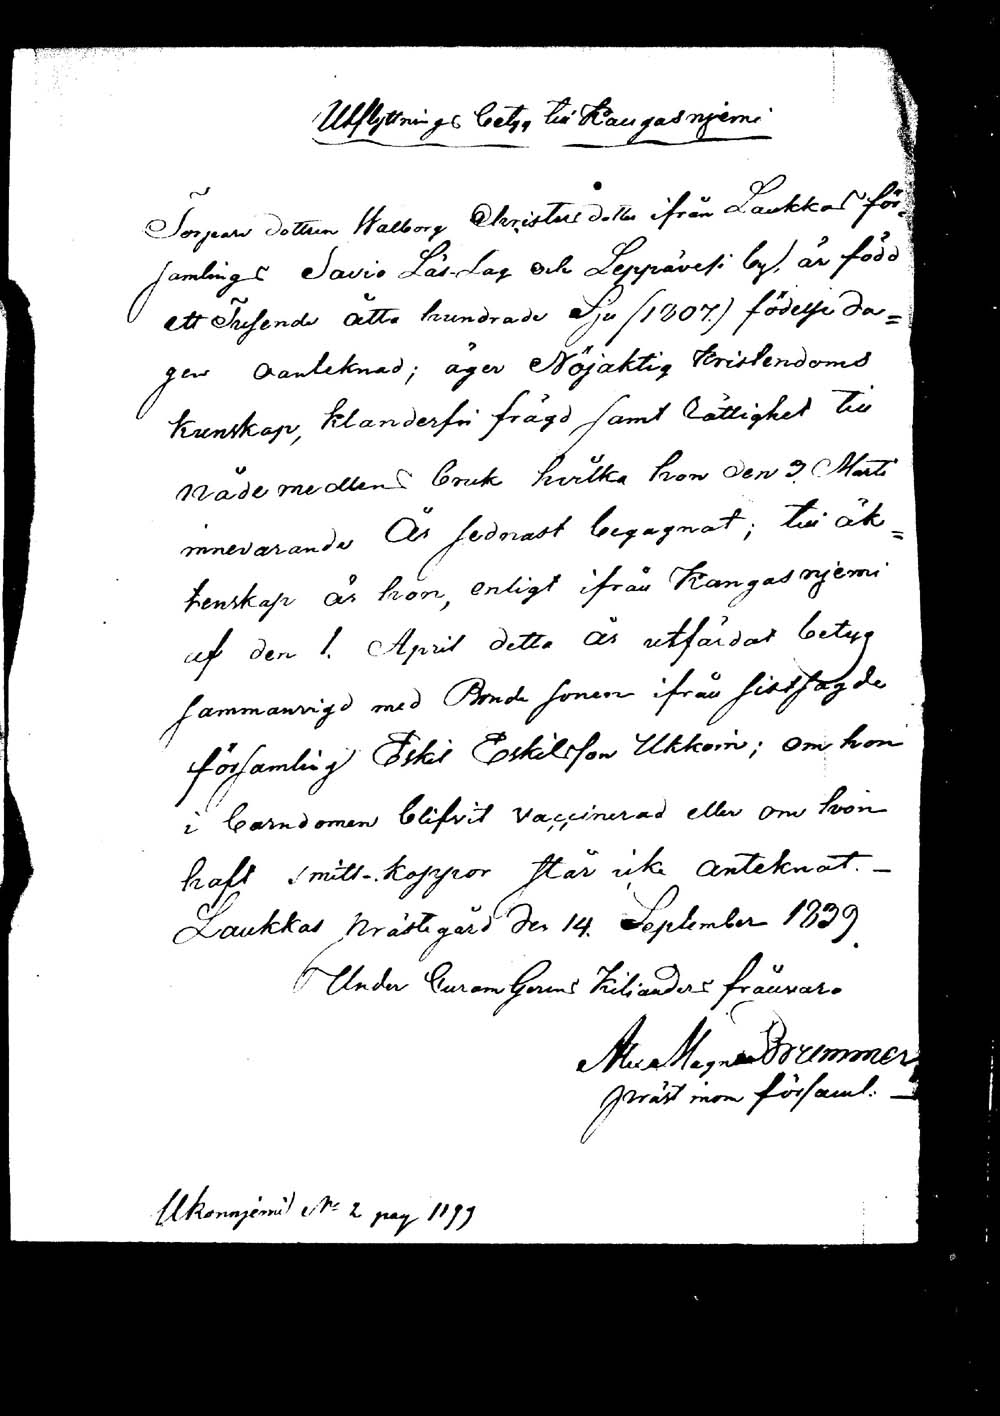 Utflyttnings betyg till Kangasnjemi
Torpare dottren Walborg Christersdotter ifrån Laukkas för-
samlings Savio Läs-Lag och Leppävesi by, är född
ett Tusende åtta hundrade Sju (1807.) födelse da=
gen oanteknad; äger Nöjaktig Kristendoms
kunskap, klanderfri frägd samt Rättighet till
nådemedlens bruk hvilka hon den 3. Marti
innevarande År sednast begagnat; till äk=
tenskap är hon, enligt ifrån Kangasnjemi
af den 1. April detta År utfärdat betyg
sammanvigd med Bonde sonen ifrån sistsagde
församling Eskil Eskilsson Ukkoin; om hon
i barndomen blifvit vaccinerad eller om hon
haft smitt-koppor står icke antecknat. –
Laukkas prästegård den 14. September 1839.
Under Curam Gerens Kilianders frånvaro
Alex Magn Brummer,
präst inom församl. –
Ukonnjemi No 2 pag 1199